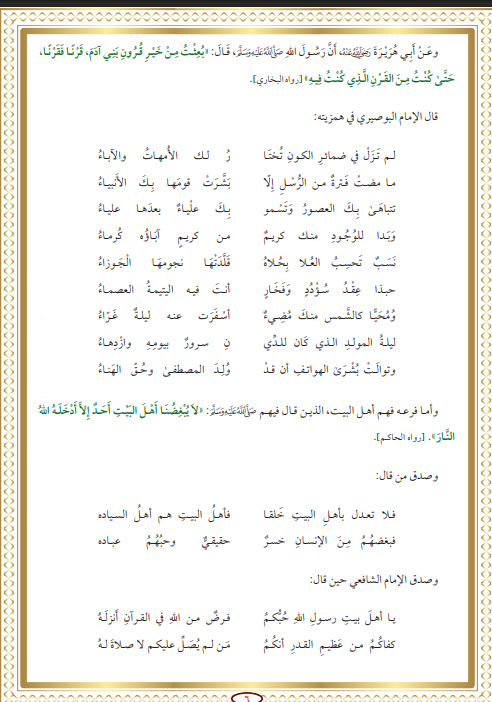 وعَنْ أَبِي هُرَيْرَةَ رَضِيَ اللهُ عَنْهُ، أَنَّ رَسُولَ اللهِ ﷺ، قَالَ: «بُعِثْتُ مِنْ خَيْرِ قُرُونِ بَنِي آدَمَ، قَرْنًا فَقَرْنًا،
حَتَّىٰ كُنْتُ مِنَ القَرْنِ الَّذِي كُنْتُ فِيهِ» [رواه البخاري].
قال الإمام البوصيري في همزيته:
لـم تَـزَلْ في ضمائـرِ الكـونِ تُختَـا رُ لـك الأُمهـاتُ والآبـاءُ
ما مضـتْ فَترةٌ مـن الرُّسْـلِ إلّا بَشَّـرَتْ قومَهـا بِـكَ الأَنبيـاءُ
تتباهَـىٰ بِـكَ العصـورُ وَتَسْـمو بِـكَ عَلْيـاءٌ بعدَهـا عليـاءُ
وَبَـدا للوُجُـودِ منـك كريـمٌ مـن كريـمٍ آبَـاؤُه كُرمـاءُ
نَسَـبٌ تَحسِـبُ العُـلا بِحُـلاهُ قَلَّدَتْهَـا نجومهَـا الْجَـوزاءُ
حبـذا عِقْـدُ سُـؤْدُدٍ وَفَخَـارٍ أنـتَ فيـه اليتيمـةُ العصمـاءُ
وُمُحَيَّـا كالشَّـمس منـكَ مُضِـيءٌ أسْـفَرَت عنـه ليلـةٌ غَـرّاءُ
ليلـةُ المولـدِ الـذي كَان للدِّيـ نِ سـرورٌ بيومِـهِ وازْدِهـاءُ
وتوالَـتْ بُشْـرَىٰ الهواتـفِ أن قـدْ وُلِـدَ المصطفـىٰ وحُـقَّ الهَنـاءُ
وأما فرعـه فهـم أهـل البيـت، الذيـن قـال فيهـم ﷺ: «لاَ يُبْغِضُنَا أَهْلَ البَيْتِ أَحَدٌ إِلاَّ أَدْخَلَهُ اللهُ
النَّارَ». [رواه الحاكم].
وصدق من قال:
فـلا تعـدل بأهـلِ البيـتِ خَلقـا فأهـلُ البيـتِ هـم أهـلُ السـياده
فبغضهُـمُ مِـنَ الإنسـانِ خسـرٌ حقيقـيٌّ وحبُّهُـمُ عبـاده
وصدق الإمام الشافعي حين قال:
يـا أهـلَ بيـتِ رسـولِ اللهِ حُبُّكـمُ فـرضٌ مـن اللهِ في القـرآنِ أنزلَـهُ
كفاكُـمُ مـن عَظيـمِ القـدرِ أنكُـمُ مَـن لـم يُصَـلِّ عليكـم لا صـلاةَ لـهُ
٦